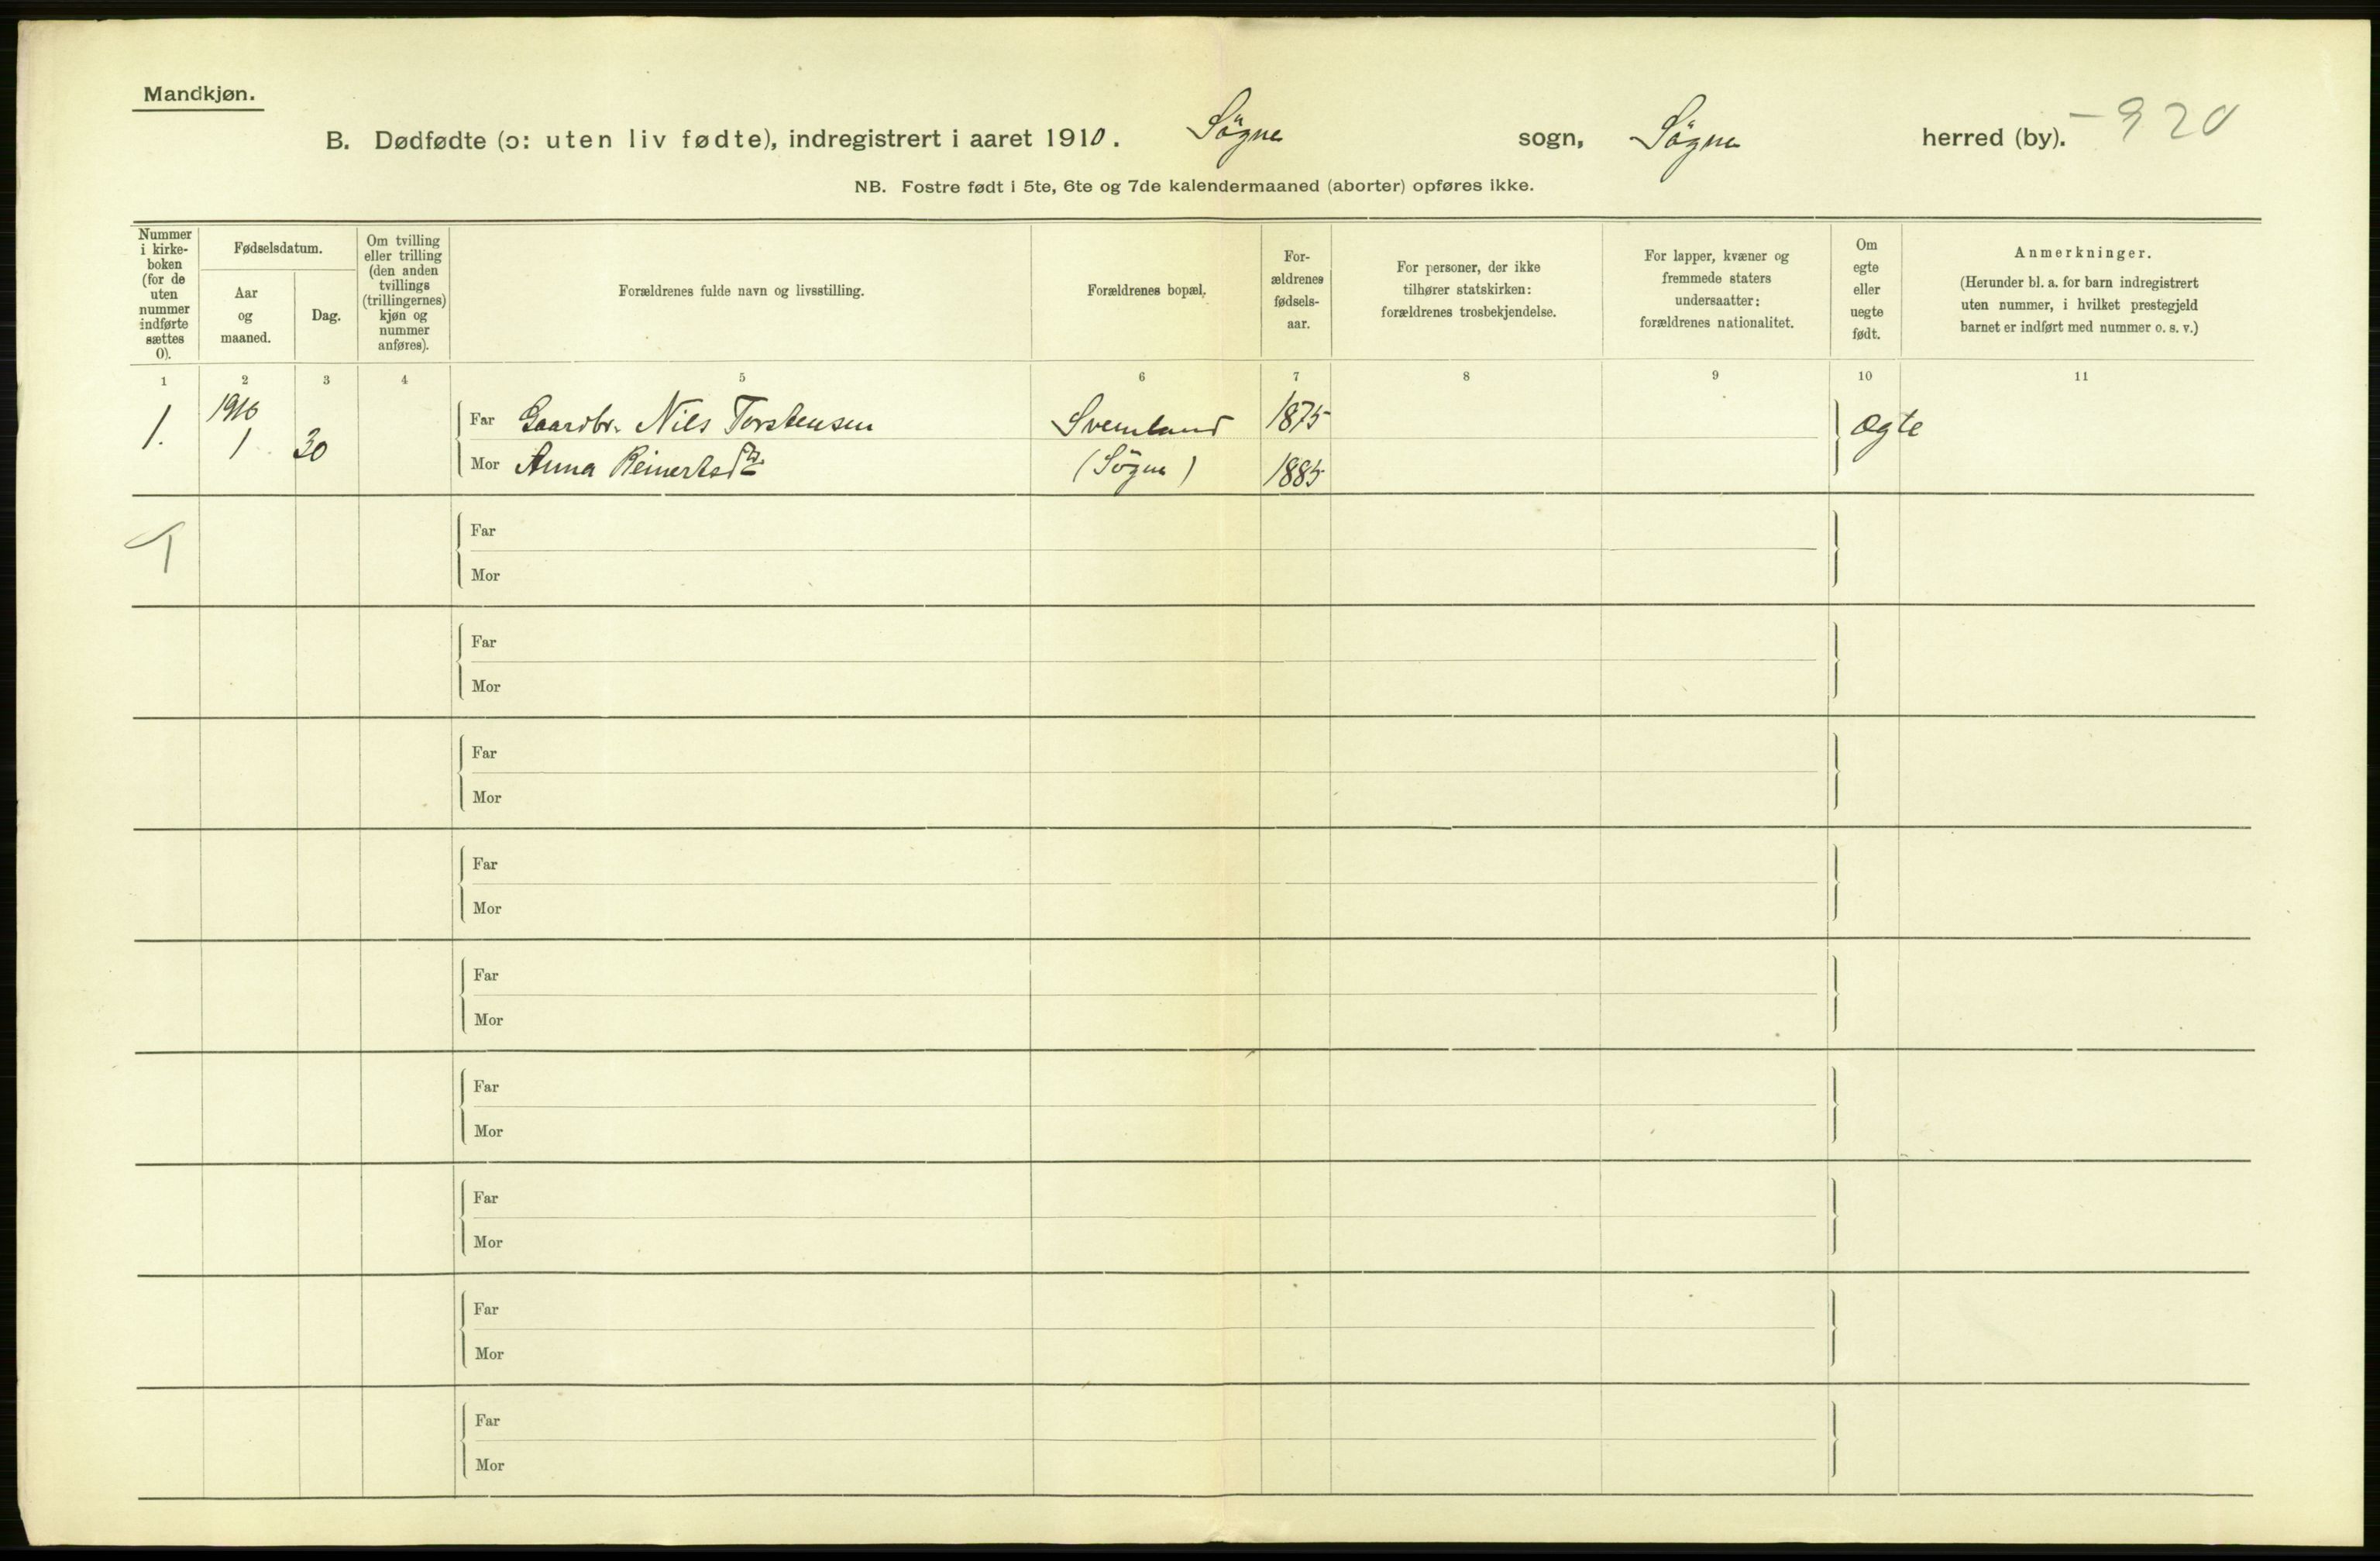 Mandkjøn.
B. Dødfødte (ɔ: uten liv fødte), indregistrert i aaret 1910. Søgne sogn, Søgne herred (by). – 920
NB. Fostre født i 5te, 6te og 7de kalendermaaned (aborter) opføres ikke.
Nummer
i kirke-
boken
(for de
uten
nummer
indførte
sættes
0).
Fødselsdatum.
Aar
og
maaned.
Dag.
Om tvilling
eller trilling
(den anden
tvillings
(trillingernes)
kjøn og
nummer
anføres).
Forældrenes fulde navn og livsstilling.
Forældrenes bopæl.
For-
ældrenes
fødsels-
aar.
For personer, der ikke
tilhører statskirken:
forældrenes trosbekjendelse.
For lapper, kvæner og
fremmede staters
undersaatter:
forældrenes nationalitet.
Om
egte
eller
uegte
født.
Anmerkninger.
(Herunder bl. a. for barn indregistrert
uten nummer, i hvilket prestegjeld
barnet er indført med nummer o. s. v.)
1 2 3 4 5 6 7 8 9 10 11
1910
1. 1 30
Far Gaardbr. Nils Torstensen 1875 Ægte
Mor Anna Reinertsdtr (Søgne) 1885
1
Far
Mor
Far
Mor
Far
Mor
Far
Mor
Far
Mor
Far
Mor
Far
Mor
Far
Mor
Far
Mor